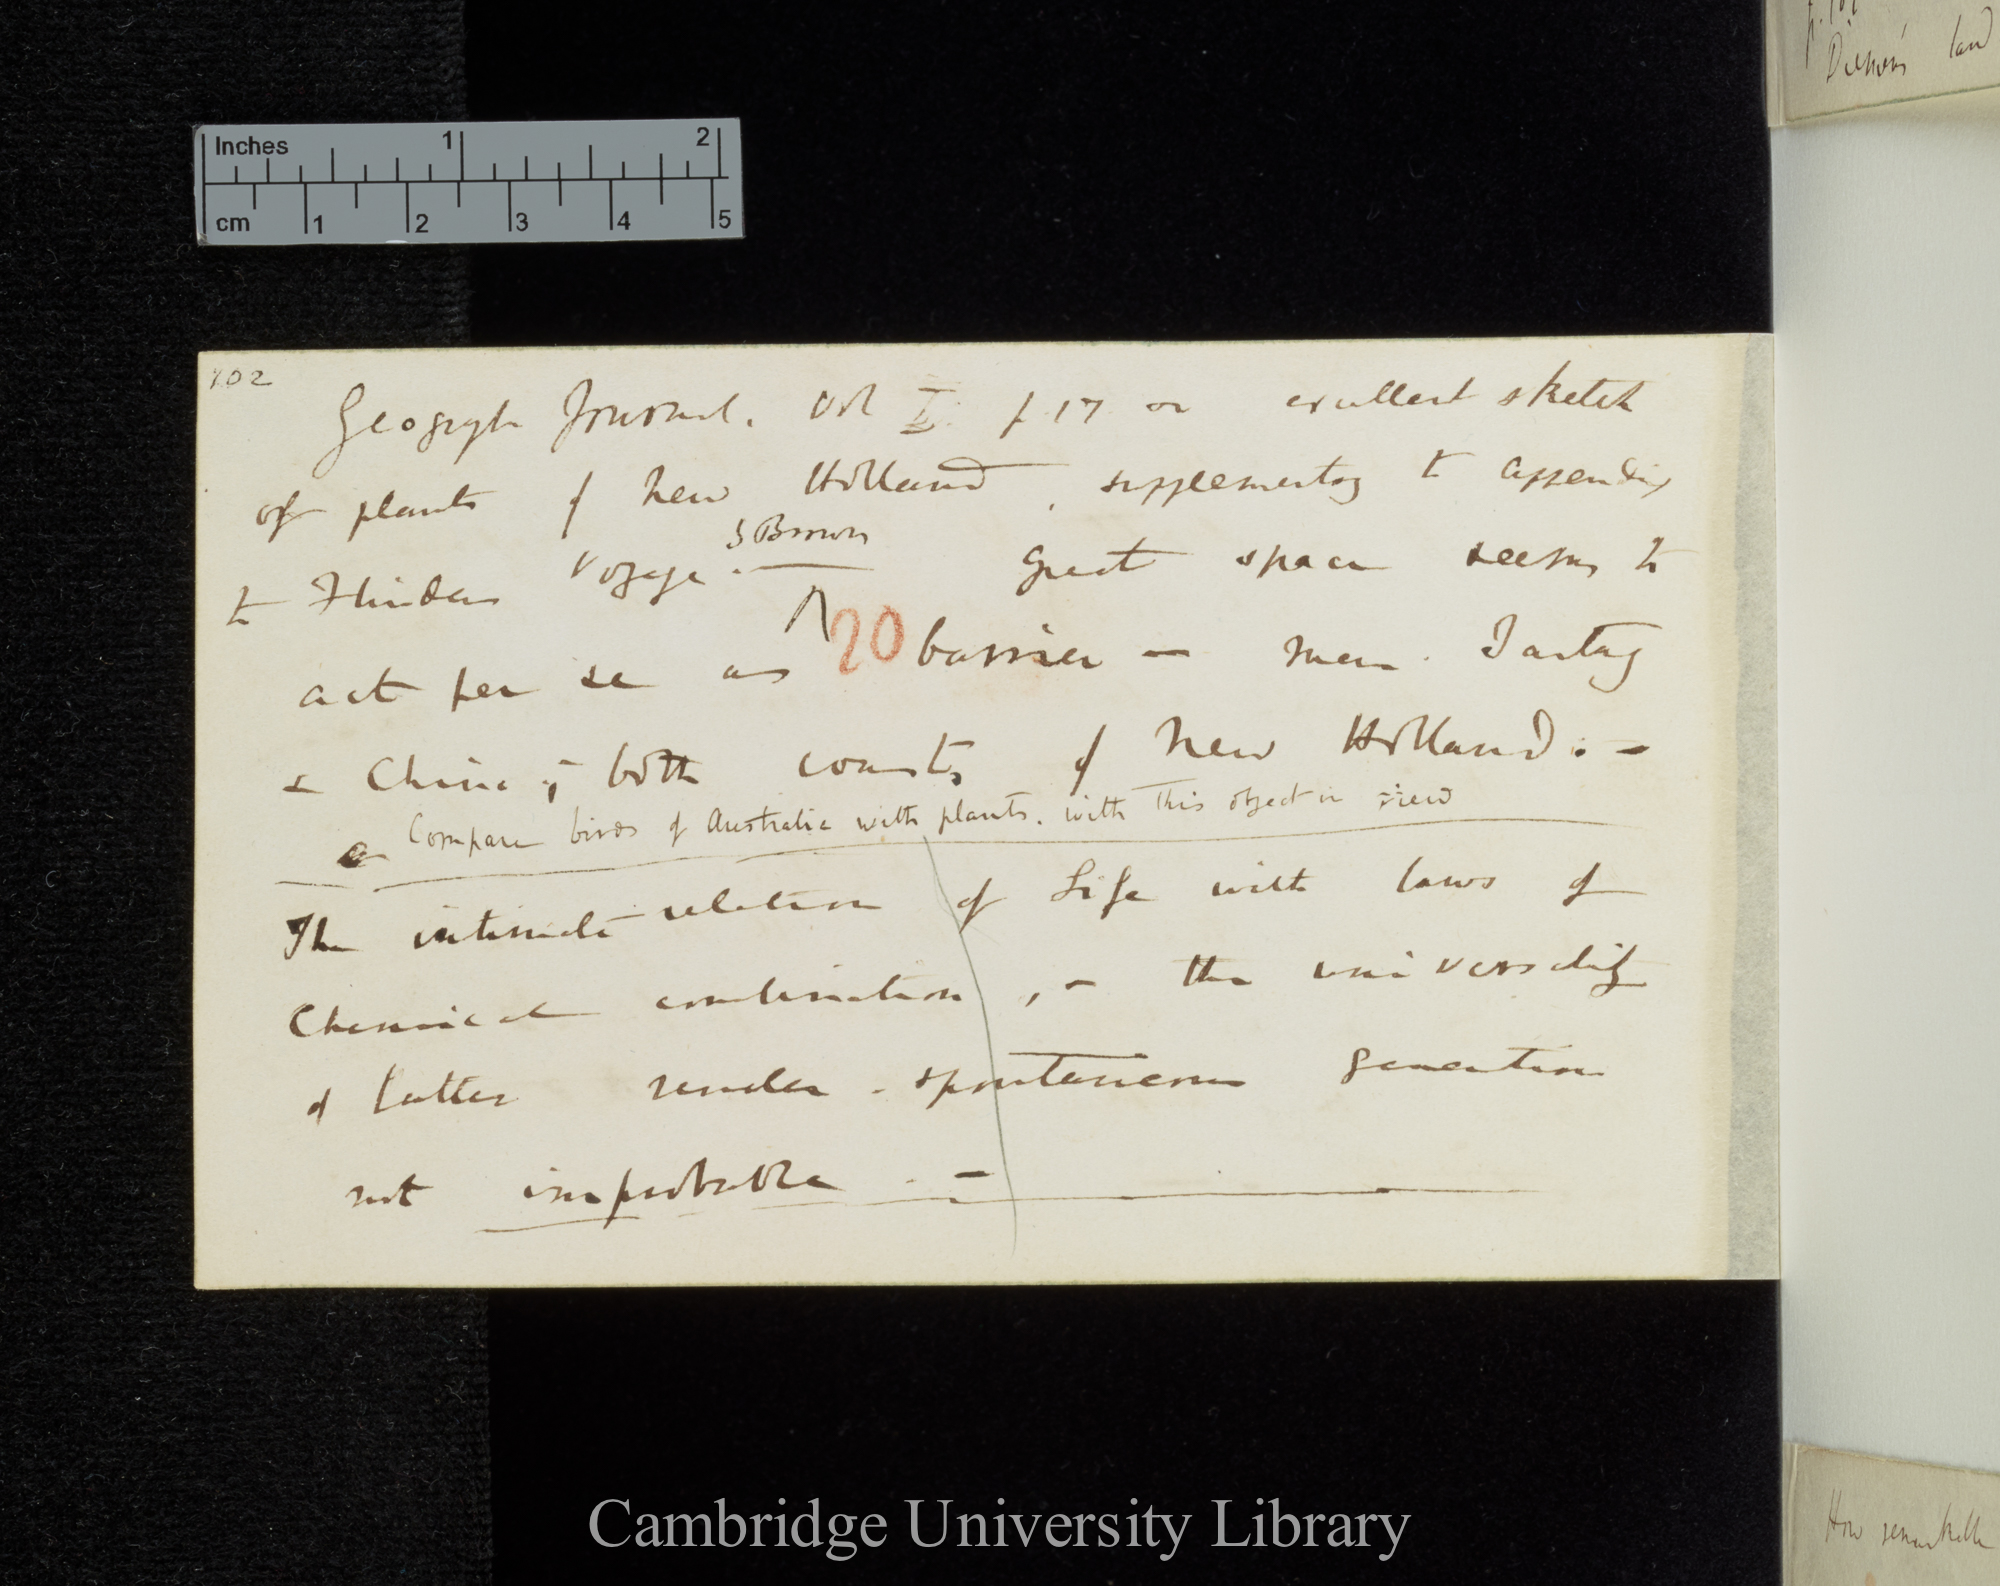 p. 101
Diemen's land
Inches 1 2
cm 1 2 3 4 5
102
Geograph Journal. Vol I. p 17 on excellent sketch
of plants of New Holland, supplementary to appendix
to Flinders Voyage. by Brown Great space seems to
act per se as 20 barrier — near Tartary
& China; — both coasts of New Holland: —
Compare birds of Australia with plants. with this object in view
The intimate relation of Life with laws of
Chemical combination, & the universality
of latter render spontaneous generation
not improbable. —
How remarkable
Cambridge University Library